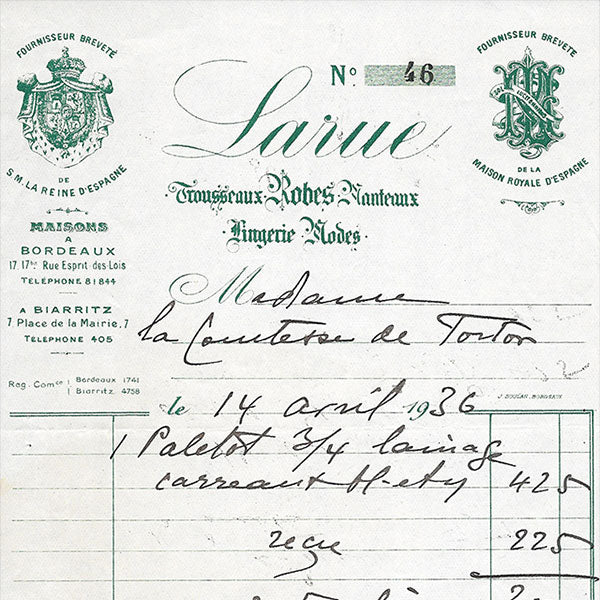 FOURNISSEUR BREVETÉ
DE
S.M. LA REINE D'ESPAGNE
MAISONS
A
BORDEAUX
17, 17bis Rue Esprit-des-Lois
TÉLÉPHONE 81844
A BIARRITZ
7 Place de la Mairie, 7
TÉLÉPHONE 405
Reg. Comce Bordeaux 1741
Biarritz 4758
No. 46
Larue
Trousseaux·Robes·Manteaux
Lingerie·Modes·
FOURNISSEUR BREVETÉ
DE LA
MAISON ROYALE D'ESPAGNE
Madame
la Comtesse de
le 14 avril 1936
1 Paletot 3/4 lainage
carreaux 425
reçu 225